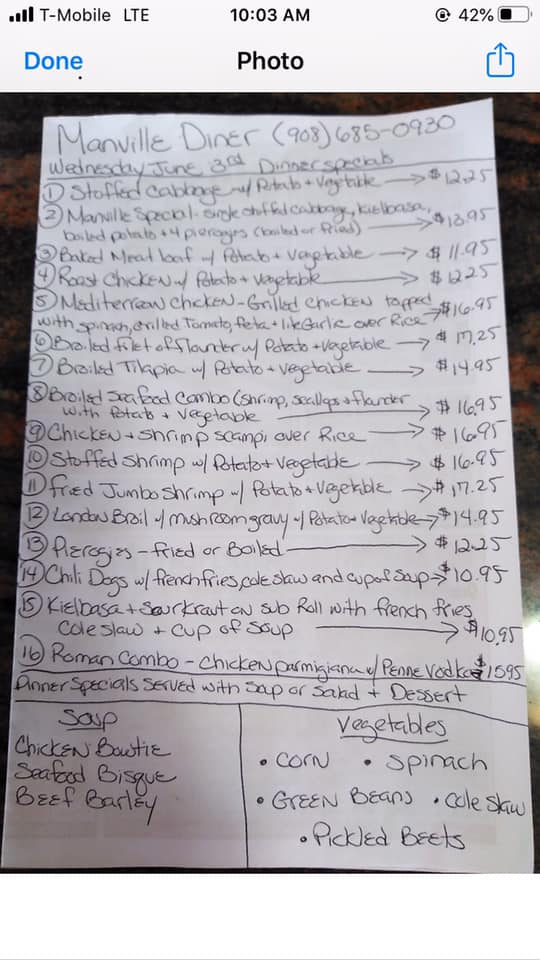 T-Mobile LTE 10:03 AM 42%
Done Photo
Manville Diner (908) 685-0930
Wednesday June 3rd Dinner specials
① Stoffed Cabbage w/ Potato + Vegetable → $12.25
② Manville Special - Single stuffed cabbage, Kielbasa,
boiled potato + 4 pierogies (boiled or fried) → $13.95
③ Baked Meat loaf w/ Potato + Vegetable → $11.95
④ Roast Chicken w/ Potato + Vegetable → $12.25
⑤ Mediterrean Chicken - Grilled Chicken topped
with spinach, Grilled Tomato, feta + Garlic over Rice → $16.95
⑥ Broiled filet of flounder w/ Potato + Vegetable → $17.25
⑦ Broiled Tilapia w/ Potato + Vegetable → $14.95
⑧ Broiled Seafood Combo (shrimp, Scallops + flounder
with Potato + Vegetable → $16.95
⑨ Chicken + Shrimp Scampi over Rice → $16.95
⑩ Stoffed Shrimp w/ Potato + Vegetable → $16.95
⑪ fried Jumbo Shrimp w/ Potato + Vegetable → $17.25
⑫ London Broil w/ mushroom gravy w/ Potato + Vegetable → $14.95
⑬ Pierogies - Fried or Boiled → $12.25
⑭ Chili Dogs w/ french fries, cole slaw and cup of Soup → $10.95
⑮ Kielbasa + Sourkraut on Sub Roll with french fries
Cole slaw + Cup of Soup → $10.95
⑯ Roman Combo - Chicken parmigiana w/ Penne Vodka $15.95
Dinner Specials Served with Soup or Salad + Dessert
Soup
Chicken Bowtie
Seafood Bisque
Beef Barley
Vegetables
• Corn • Spinach
• Green Beans • Cole Slaw
• Pickled Beets